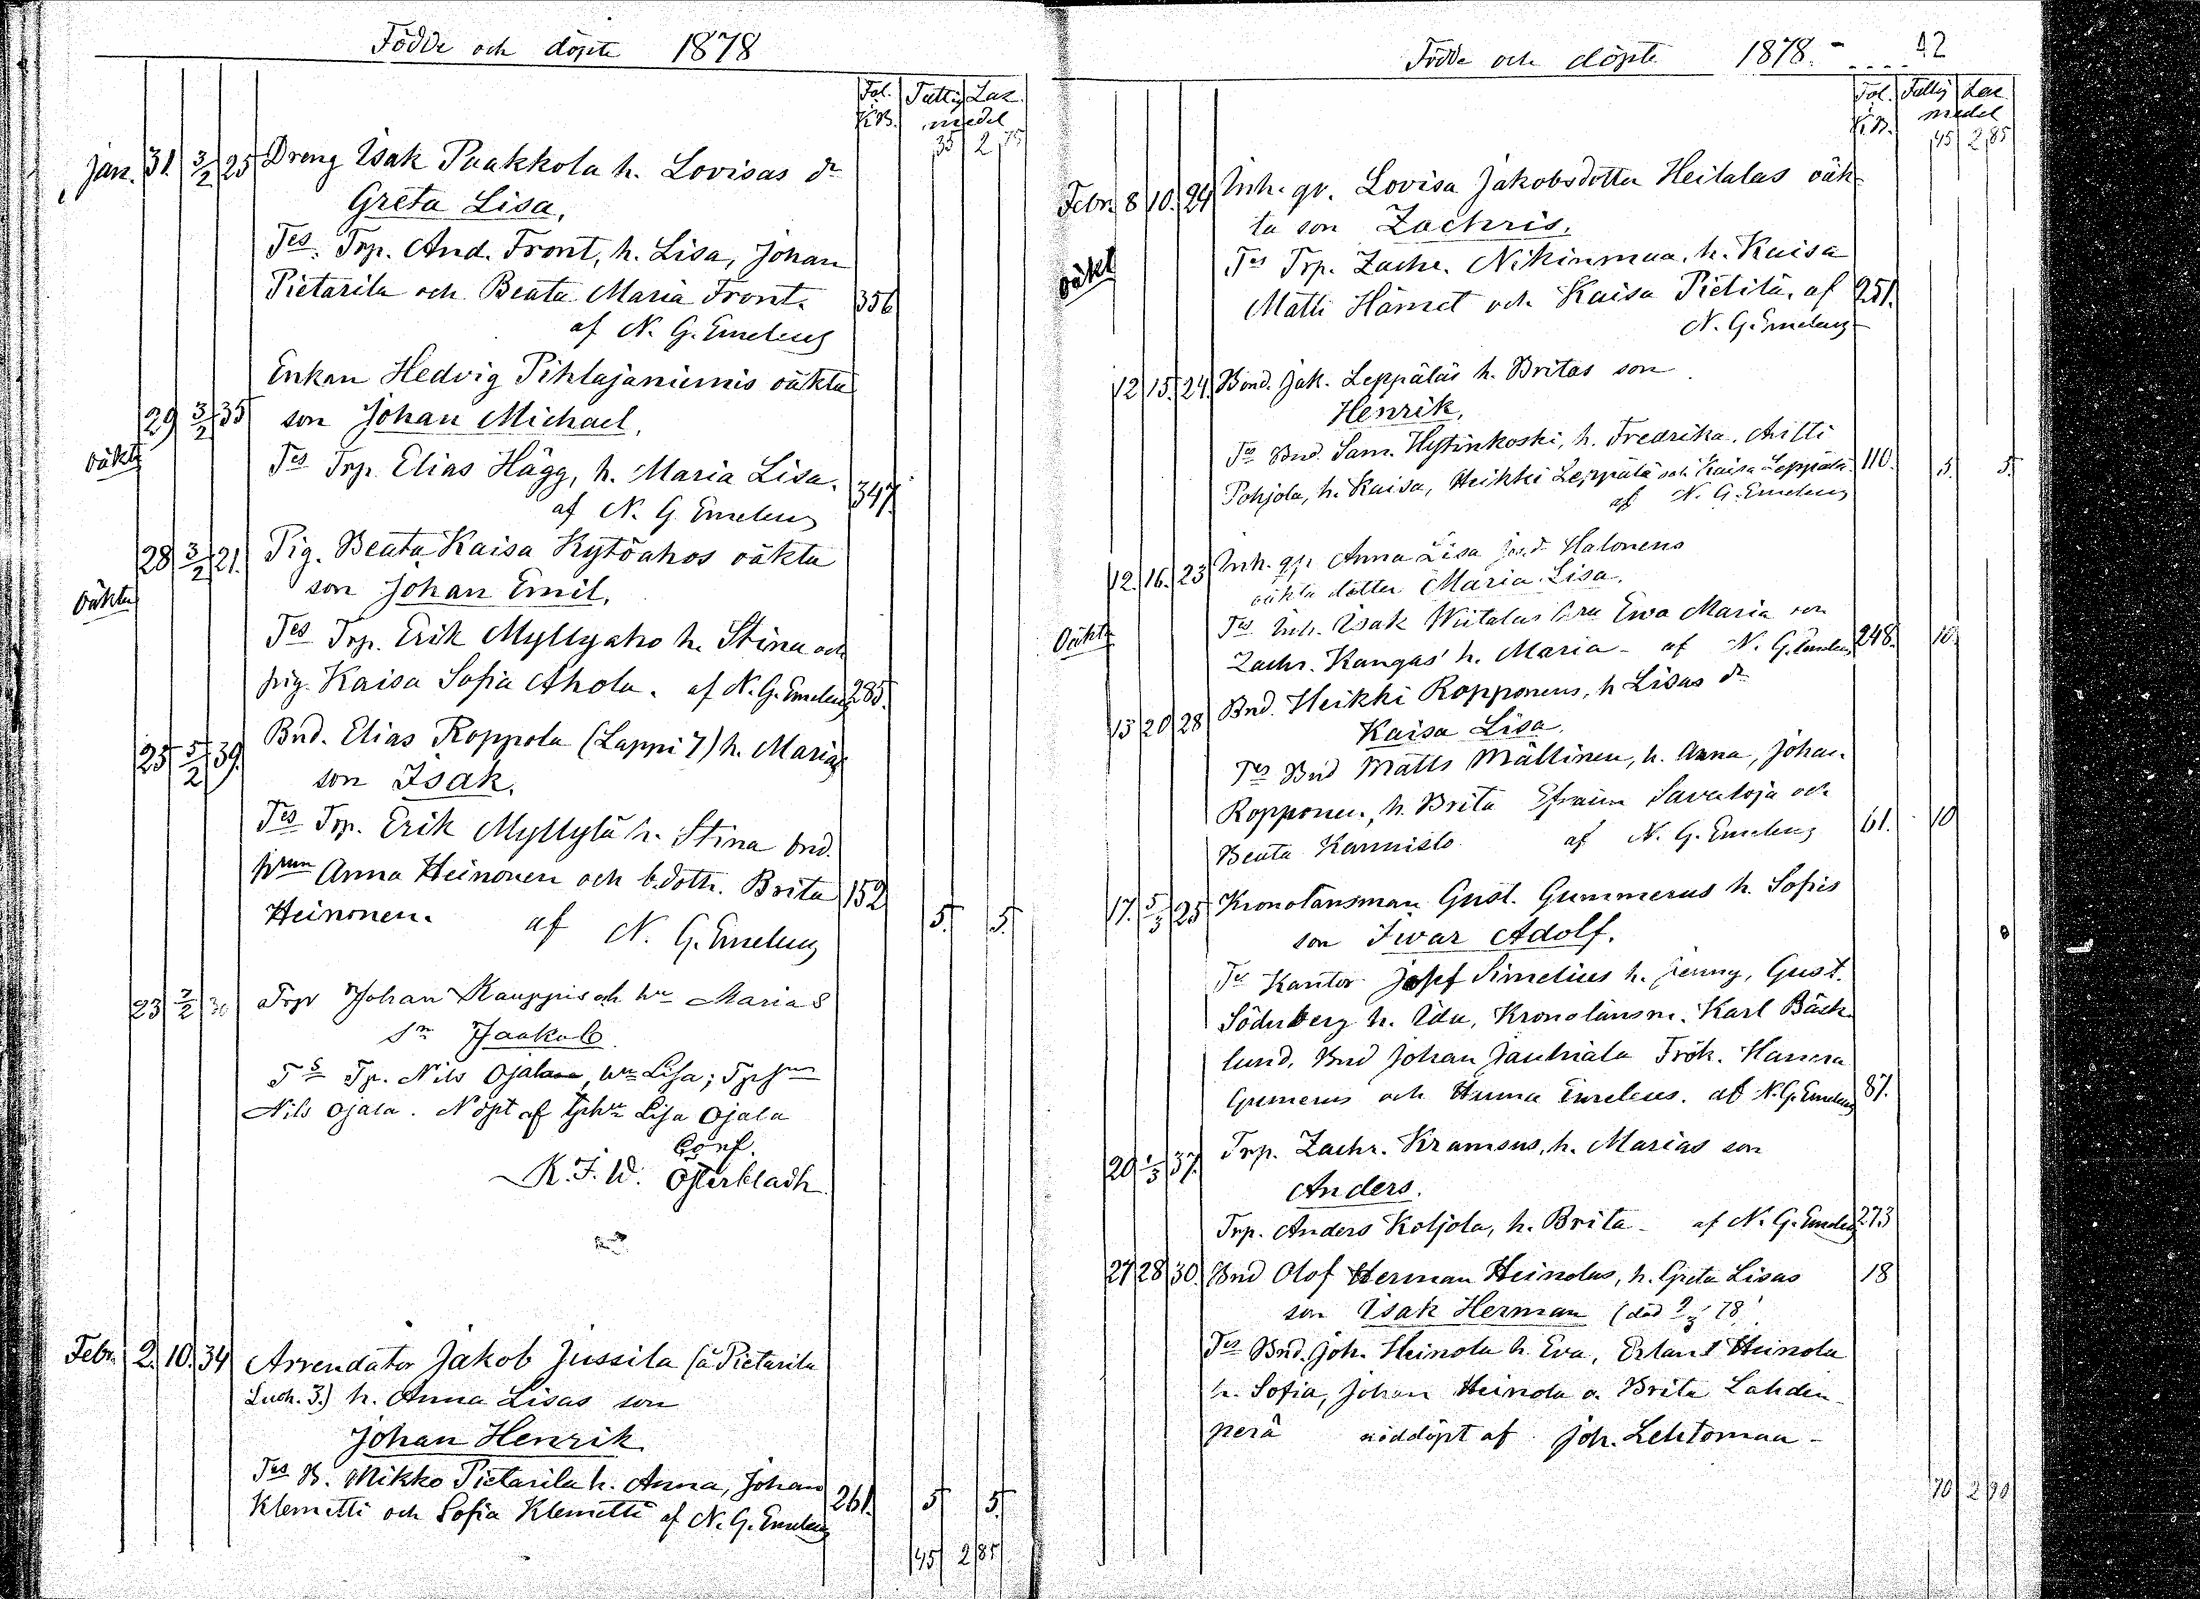 Födde och döpte 1878
Fol. K.B. Fattig Laz. medel
35 2 75
Jan. 31. 3/2 25 Dreng Isak Paakkola h. Lovisas dr
Greta Lisa.
Tes. Trp. And. Front, h. Lisa, Johan
Pietarila och Beata Maria Front. 356
af N. G. Emeleus
Enkan Hedvig Pihlajaniemis oäkta
29 3/2 35 son Johan Michael.
oäkta
Tes Trp. Elias Hägg, h. Maria Lisa. 347.
af N. G. Emeleus
28 3/2 21. Pig. Beata Kaisa Kytöahos oäkta
oäkta son Johan Emil.
Tes Trp. Erik Myllyaho h. Stina och
pig. Kaisa Sofia Ahola. af N. G. Emeleus 285.
25 5/2 39. Bnd. Elias Roppola (Lappi 7) h. Marias
son Isak.
Tes Trp. Erik Myllylä h. Stina bnd.
Anna Heinonen och b.dottr. Brita 152
Heinonen. af N. G. Emeleus 5. 5.
23 2/2 30 Trp Johan Kauppis och hu Marias
sn Jaakob.
Ts Tp. Nils Ojala, hu Lisa;
Nils Ojala. Nöpt af Lisa Ojala
Conf.
K. F. W. Österbladh.
Febr. 2. 10. 34 Arrendator Jakob Jussila (å Pietarila
Luoh. 3.) h. Anna Lisas son
Johan Henrik
Tes B. Mikko Pietarila h. Anna, Johan
Klemetti och Sofia Klemetti af N. G. Emeleus 261. 5 5.
45 2 85
Födde och döpte 1878. 42
Fol. K.B. Fattig Laz medel
45 2 85
Febr. 8 10. 24 Inh. qv. Lovisa Jakobsdotter Heitalas oäk-
ta son Zachris.
oäkt Tes Trp. Zachr. Nikinmaa, h. Kaisa
Matti Hämet och Kaisa Pietilä, af 251.
N. G. Emeleus
12 15. 24. Bond. Jak. Leppäläs h. Britas son
Henrik.
Tes Bnd. Sam. Hytinkoski, h. Fredrika. Antti
Pohjola, h. Kaisa, Heikki Leppälä och Kaisa Leppälä. 110. 5. 5.
af N. G. Emeleus
12. 16. 23 Inh. qv. Anna Lisa Halonens
oäkta dotter Maria Lisa.
Oäkta Tes Inh. Isak Wiitalas hru Ewa Maria
Zachr. Kangas' h. Maria - af N. G. Emeleus 248. 10.
13 20 28 Bnd. Heikki Ropponens, h Lisas dr
Kaisa Lisa.
Tes Bnd Matts Mällinen, h. Anna, Johan
Ropponen, h. Brita Efraim Savuoja och
Beata Kannisto af N. G. Emeleus 61. 10
17. 5/3 25 Kronolänsman Gust. Gummerus h. Sofies
son Iwar Adolf.
Tes Kantor Josef Simelius h. Jenny, Gust.
Söderberg h. Ida, Kronolänsm. Karl Bäck
lund, Bnd Johan Frök. Hanna
Gumerus och Hanna Emeleus. af N. G. Emeleus 87.
20 1/3 37. Trp. Zachr. Kramsus, h. Marias son
Anders.
Trp. Anders Koljola, h. Brita - af N. G. Emeleus 273
27 28 30. Bnd Olof Herman Heinolas, h. Greta Lisas 18
son Isak Herman (död 9/3 78)
Tes Bnd. Joh. Heinola h. Eva, Erland Heinola
h. Sofia, Johan Heinola o. Brita Lahden-
perä nöddöpt af Joh. Lehtomaa -
70 2 90